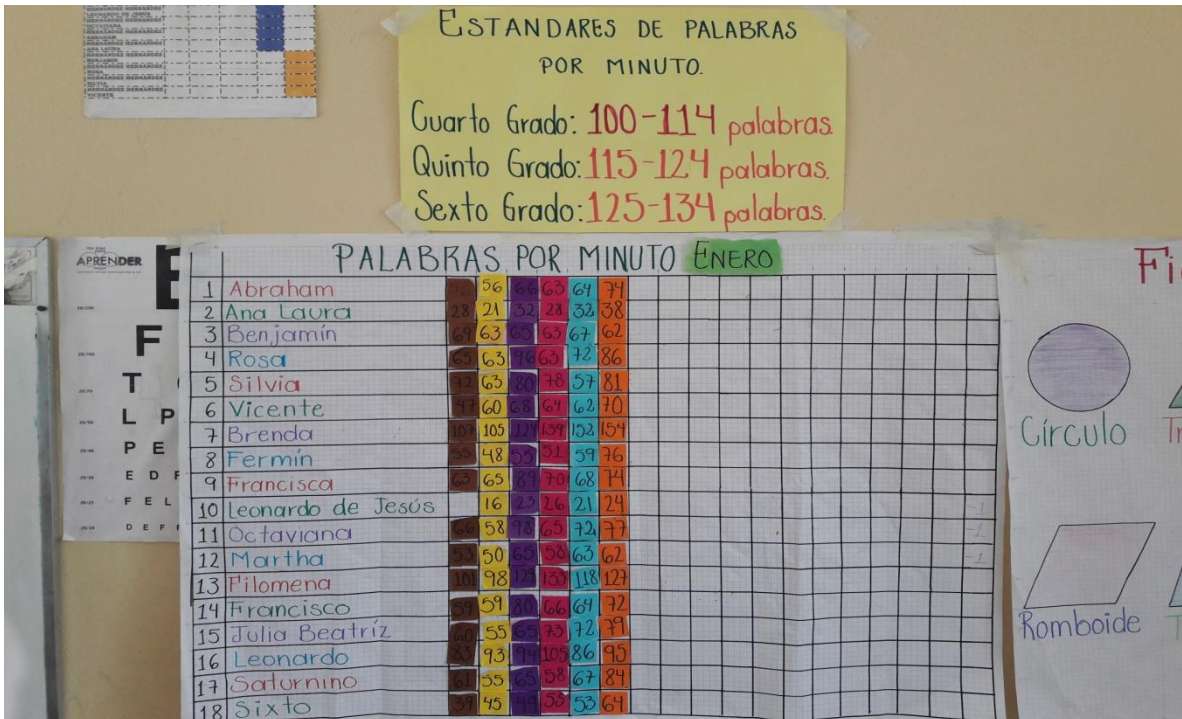 ESTANDARES DE PALABRAS
POR MINUTO.
Cuarto Grado: 100-114 palabras.
Quinto Grado: 115-124 palabras.
Sexto Grado: 125-134 palabras.
APRENDER
E
F
T
L P
P E
E D F
F E L
D E F
PALABRAS POR MINUTO ENERO
1 Abraham 56 66 63 64 74
2 Ana Laura 28 21 32 28 32 38
3 Benjamín 69 63 65 63 67 62
4 Rosa 65 63 96 63 72 86
5 Silvia 72 63 80 78 57 81
6 Vicente 47 60 68 64 62 70
7 Brenda 107 105 129 139 152 154
8 Fermín 55 48 55 51 59 76
9 Francisca 63 65 89 70 68 74
10 Leonardo de Jesús 16 23 26 21 24
11 Octaviana 66 58 98 65 72 77
12 Martha 53 50 65 58 63 62
13 Filomena 101 98 129 133 118 127
14 Francisco 59 59 80 66 64 72
15 Julia Beatríz 60 55 65 73 72 79
16 Leonardo 83 93 94 105 86 95
17 Saturnino 61 55 65 58 67 84
18 Sixto 39 45 49 55 53 64
Círculo
Romboide